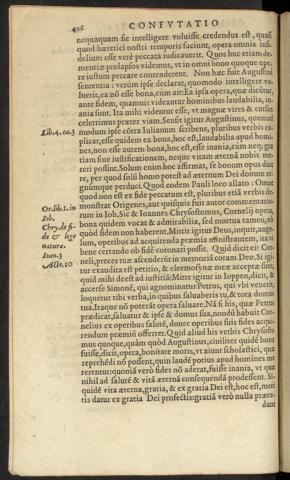 496 CONFVTATIO
nequaquam sic intelligere voluisse credendus est, quasi
quod hæretici nostri temporis faciunt, opera omnia infi-
delium esse verè peccata iudicauerit. Quos huc etiam de-
mentiæ prolapsos videmus, vt in omni bono quoque ope-
re iustum peccare contenderent. Non hæc fuit Augustini
sententia: verùm ipse declarat, quomodo intelligere vo-
luerit, ea nō esse bona, cùm ait ea ipsa opera, quæ dicūtur,
ante fidem, quamuis videantur hominibus laudabilia, in-
ania sunt. Ita mihi videntur esse, vt magnæ vires & cursus
celerrimus præter viam. Sensit igitur Augustinus, quemad
Lib.4. ca.3 modum ipse cōtra Iulianum scribens, pluribus verbis ex-
plicat, esse quidem ea bona, hoc est, laudabilia apud homi-
nes, non esse autem bona, hoc est, esse inania, cùm neq; gra
tiam siue iustificationem, neque vitam æternā nobis me-
reri possint. Solum enim hoc affirmat, se bonum opus dice
re, per quod solū homo potest ad æternum Dei donum re
gnúmque perduci. Quod eodem Pauli loco allato: Omne
quod non est ex fide peccatum est, pluribus etiā verbis de-
Or.lib.1.in monstrat Origenes, aut quisquis fuit autor commentario-
Iob. rum in Iob. Sic & Ioannes Chrysostomus, Cornelij opera,
Chry.de fi- bona quidem vocat & admirabilia, sed mortua tamen, eò
de & lege quòd fidem non haberent. Mittit igitur Deus, inquit, ange-
naturæ. lum, operibus ad acquirenda præmia assistrantem, ita vt
Ioan.3 bene certando ob fidē coronari possit. Quid dicit ei? Cor-
Acto.10 neli, preces tuæ ascenderūt in memoriā coram Deo. Si igi-
tur exaudita est petitio, & eleemosynæ meæ acceptæ sunt,
quid mihi deest ad iustitiā? Mitte igitur in Ioppen, dicit, &
accerse Simonē, qui agnominatur Petrus, qui vbi venerit,
loquetur tibi verba, in quibus saluaberis tu, & tota domus
tua. Itaque nō poterāt opera saluare. Nā si his, quæ Petrus
prædicat, saluatur & ipse & domus sua, nondū habuit Cor-
nelius ex operibus salutē, donec operibus suis fides acqui-
rendum præmiū offerret. Quid aliud his verbis Chrysosto
mus quoque, quàm quòd Augustinus, ciuiliter quidē bona
fuisse, dicit, opera, bonitate moris, vt aiunt scholastici, quæ
reprehēdi nō possent, quin laudē potius apud homines me
rerentur: quoniā verò fides nō aderat, fuisse inania, vt quæ
nihil ad salutē & vitā æternā consequendā prodessent. Si-
quidē vita æterna, gratia, & ex gratia Dei est, hoc est, meri
tis datur ex gratia Dei profectis: gratiā verò nulla præce-
dunt